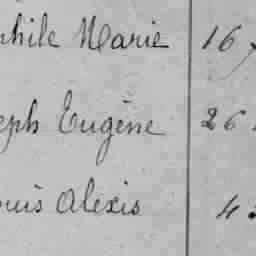 phile Marie 16
eph Eugène 26
ouis Alexis 4